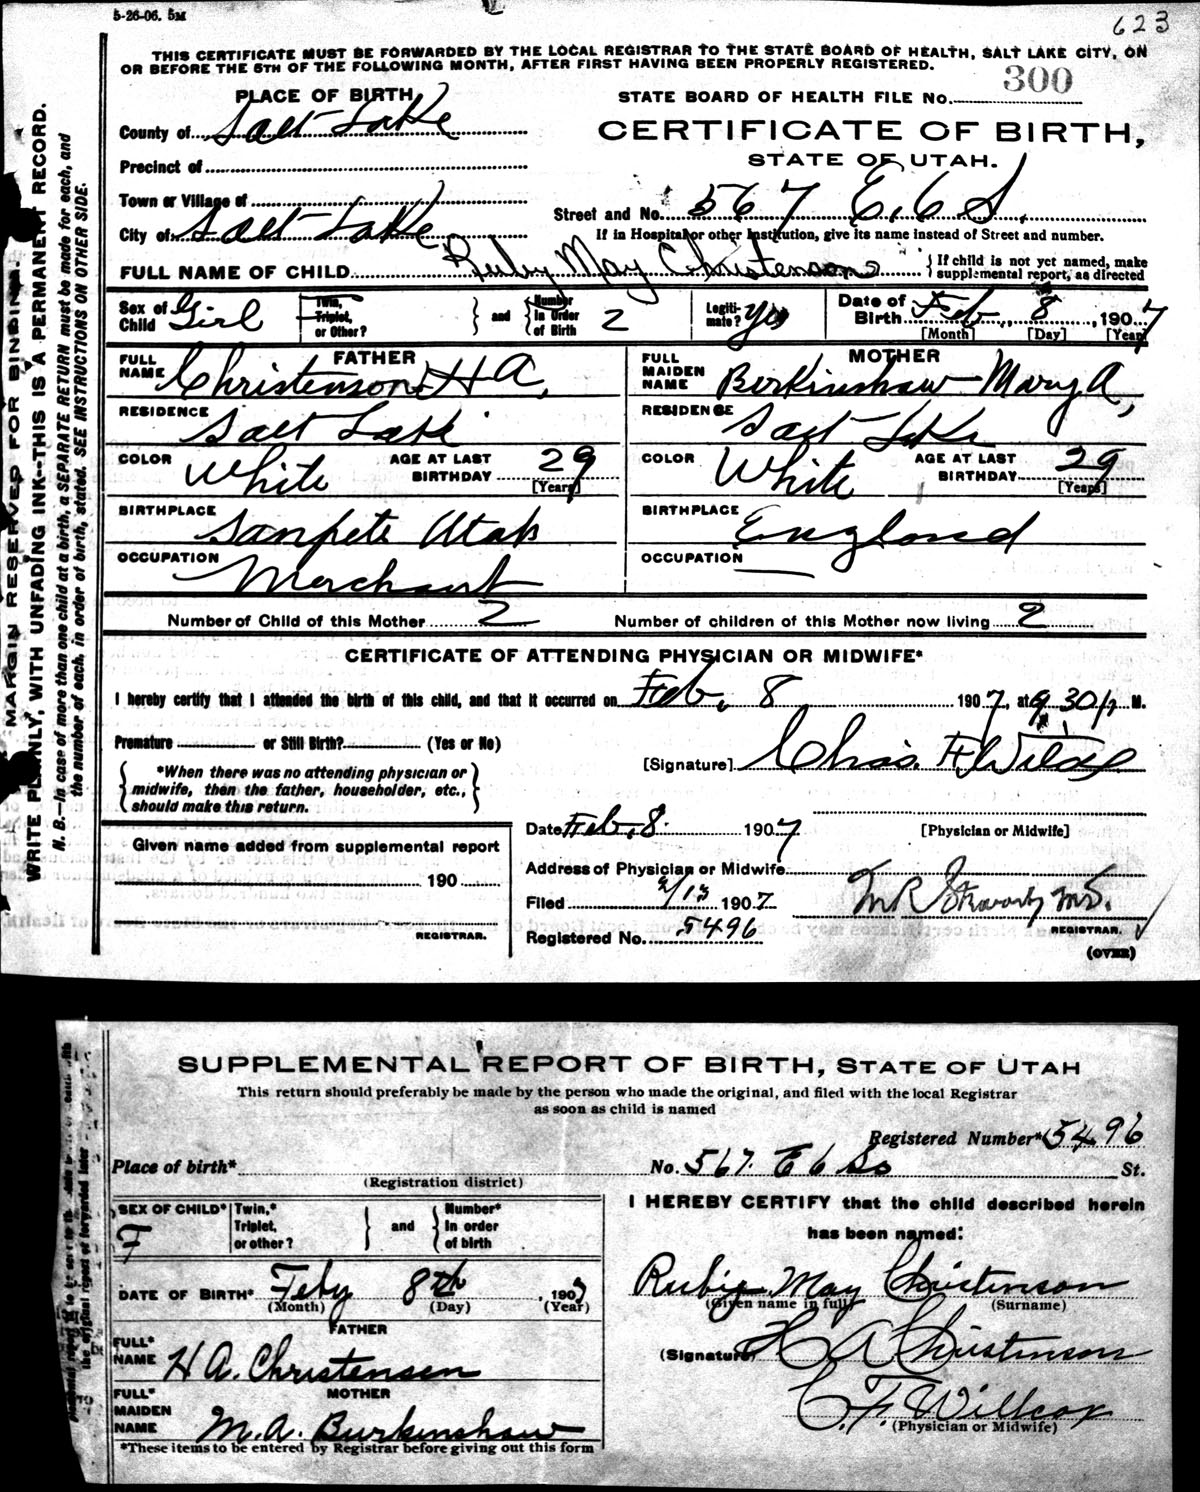 5-26-06. 5M
623
THIS CERTIFICATE MUST BE FORWARDED BY THE LOCAL REGISTRAR TO THE STATE BOARD OF HEALTH, SALT LAKE CITY, ON
OR BEFORE THE 5TH OF THE FOLLOWING MONTH, AFTER FIRST HAVING BEEN PROPERLY REGISTERED.
MARGIN RESERVED FOR BINDING.
WRITE PLAINLY, WITH UNFADING INK--THIS IS A PERMANENT RECORD.
N. B.—In case of more than one child at a birth, a SEPARATE RETURN must be made for each, and
the number of each, in order of birth, stated. SEE INSTRUCTIONS ON OTHER SIDE.
PLACE OF BIRTH
STATE BOARD OF HEALTH FILE No. 300
County of Salt Lake
CERTIFICATE OF BIRTH,
STATE OF UTAH.
Precinct of
Town or Village of
Street and No. 567 E. 6 S.
City of Salt Lake
If in Hospital or other Institution, give its name instead of Street and number.
FULL NAME OF CHILD Ruby May Christenson
If child is not yet named, make
supplemental report, as directed
Sex of Child Girl
Twin, Triplet, or Other?
and
Number In Order of Birth 2
Legitimate? Yes
Date of Birth Feb., 8, 1907
[Month] [Day] [Year]
FATHER
FULL NAME Christenson H A,
MOTHER
FULL MAIDEN NAME Berkinshaw Mary A,
RESIDENCE Salt Lake
RESIDENCE Salt Lake
COLOR White AGE AT LAST BIRTHDAY 29 [Years]
COLOR White AGE AT LAST BIRTHDAY 29 [Years]
BIRTHPLACE Sanpete Utah
BIRTHPLACE England
OCCUPATION Merchant
OCCUPATION
Number of Child of this Mother 2
Number of children of this Mother now living 2
CERTIFICATE OF ATTENDING PHYSICIAN OR MIDWIFE*
I hereby certify that I attended the birth of this child, and that it occurred on Feb, 8 1907, at 9 30 M.
Premature or Still Birth? (Yes or No)
[Signature] Chas. F.
*When there was no attending physician or
midwife, then the father, householder, etc.,
should make this return.
Date Feb, 8. 1907
[Physician or Midwife]
Given name added from supplemental report
190
REGISTRAR.
Address of Physician or Midwife
Filed 2/13 1907
M R M.D.
REGISTRAR.
Registered No. 5496
(OVER)
SUPPLEMENTAL REPORT OF BIRTH, STATE OF UTAH
This return should preferably be made by the person who made the original, and filed with the local Registrar
as soon as child is named
Registered Number* 5496
Place of birth*
(Registration district)
No. 567. E 6 So St.
SEX OF CHILD* F
Twin,* Triplet, or other?
and
Number* In order of birth
I HEREBY CERTIFY that the child described herein
has been named:
DATE OF BIRTH* Feby 8th, 1907
(Month) (Day) (Year)
Rubie May Christenson
(Given name in full) (Surname)
FATHER
FULL* NAME H A. Christensen
(Signature) H A Christenson
MOTHER
FULL* MAIDEN NAME M. A. Burkinshaw
C. F. Willcox
(Physician or Midwife)
*These items to be entered by Registrar before giving out this form